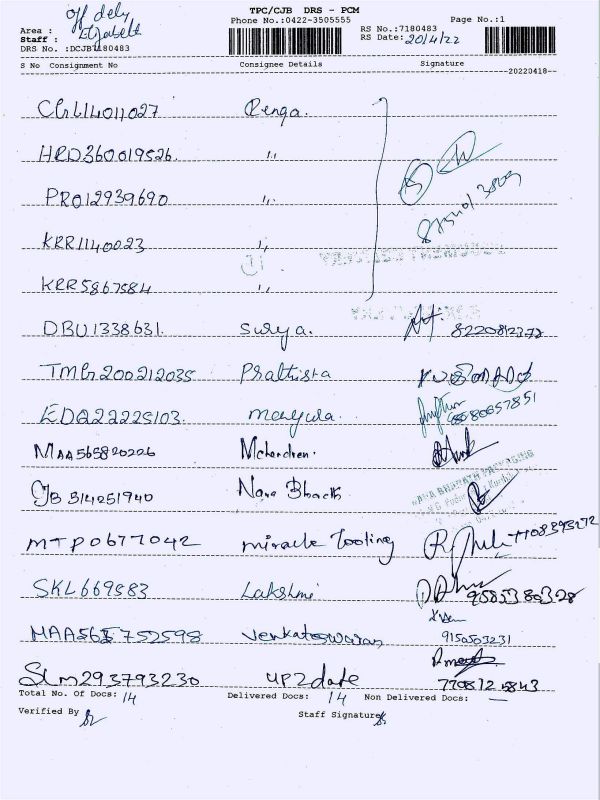 TPC/CJB DRS - PCM
off dely
Phone No.:0422-3505555 Page No.:1
Area : RS No.:7180483
Staff : Elizabeth RS Date: 20/4/22
DRS No. :DCJB7180483
S No Consignment No Consignee Details Signature
20220418
CGL14011027 Renga.
HRD360019526. "
PRO12939690 "
KRR1140023 "
KRR5867584 "
DBU1338631. Surya. 8220812378
TMG200212035 Prathista
EDQ22225103. Manjula.
MAA565820226 Mchandran.
CJB514251940 Nava Bharath
MTP0677042 miracle Tooling
SKL669583 Lakshmi 9585380328
752598 Venkateswaran 9150503231
SLM293793230 UP2date
Total No. Of Docs: 14 Delivered Docs: 14 Non Delivered Docs: —
Verified By Staff Signature